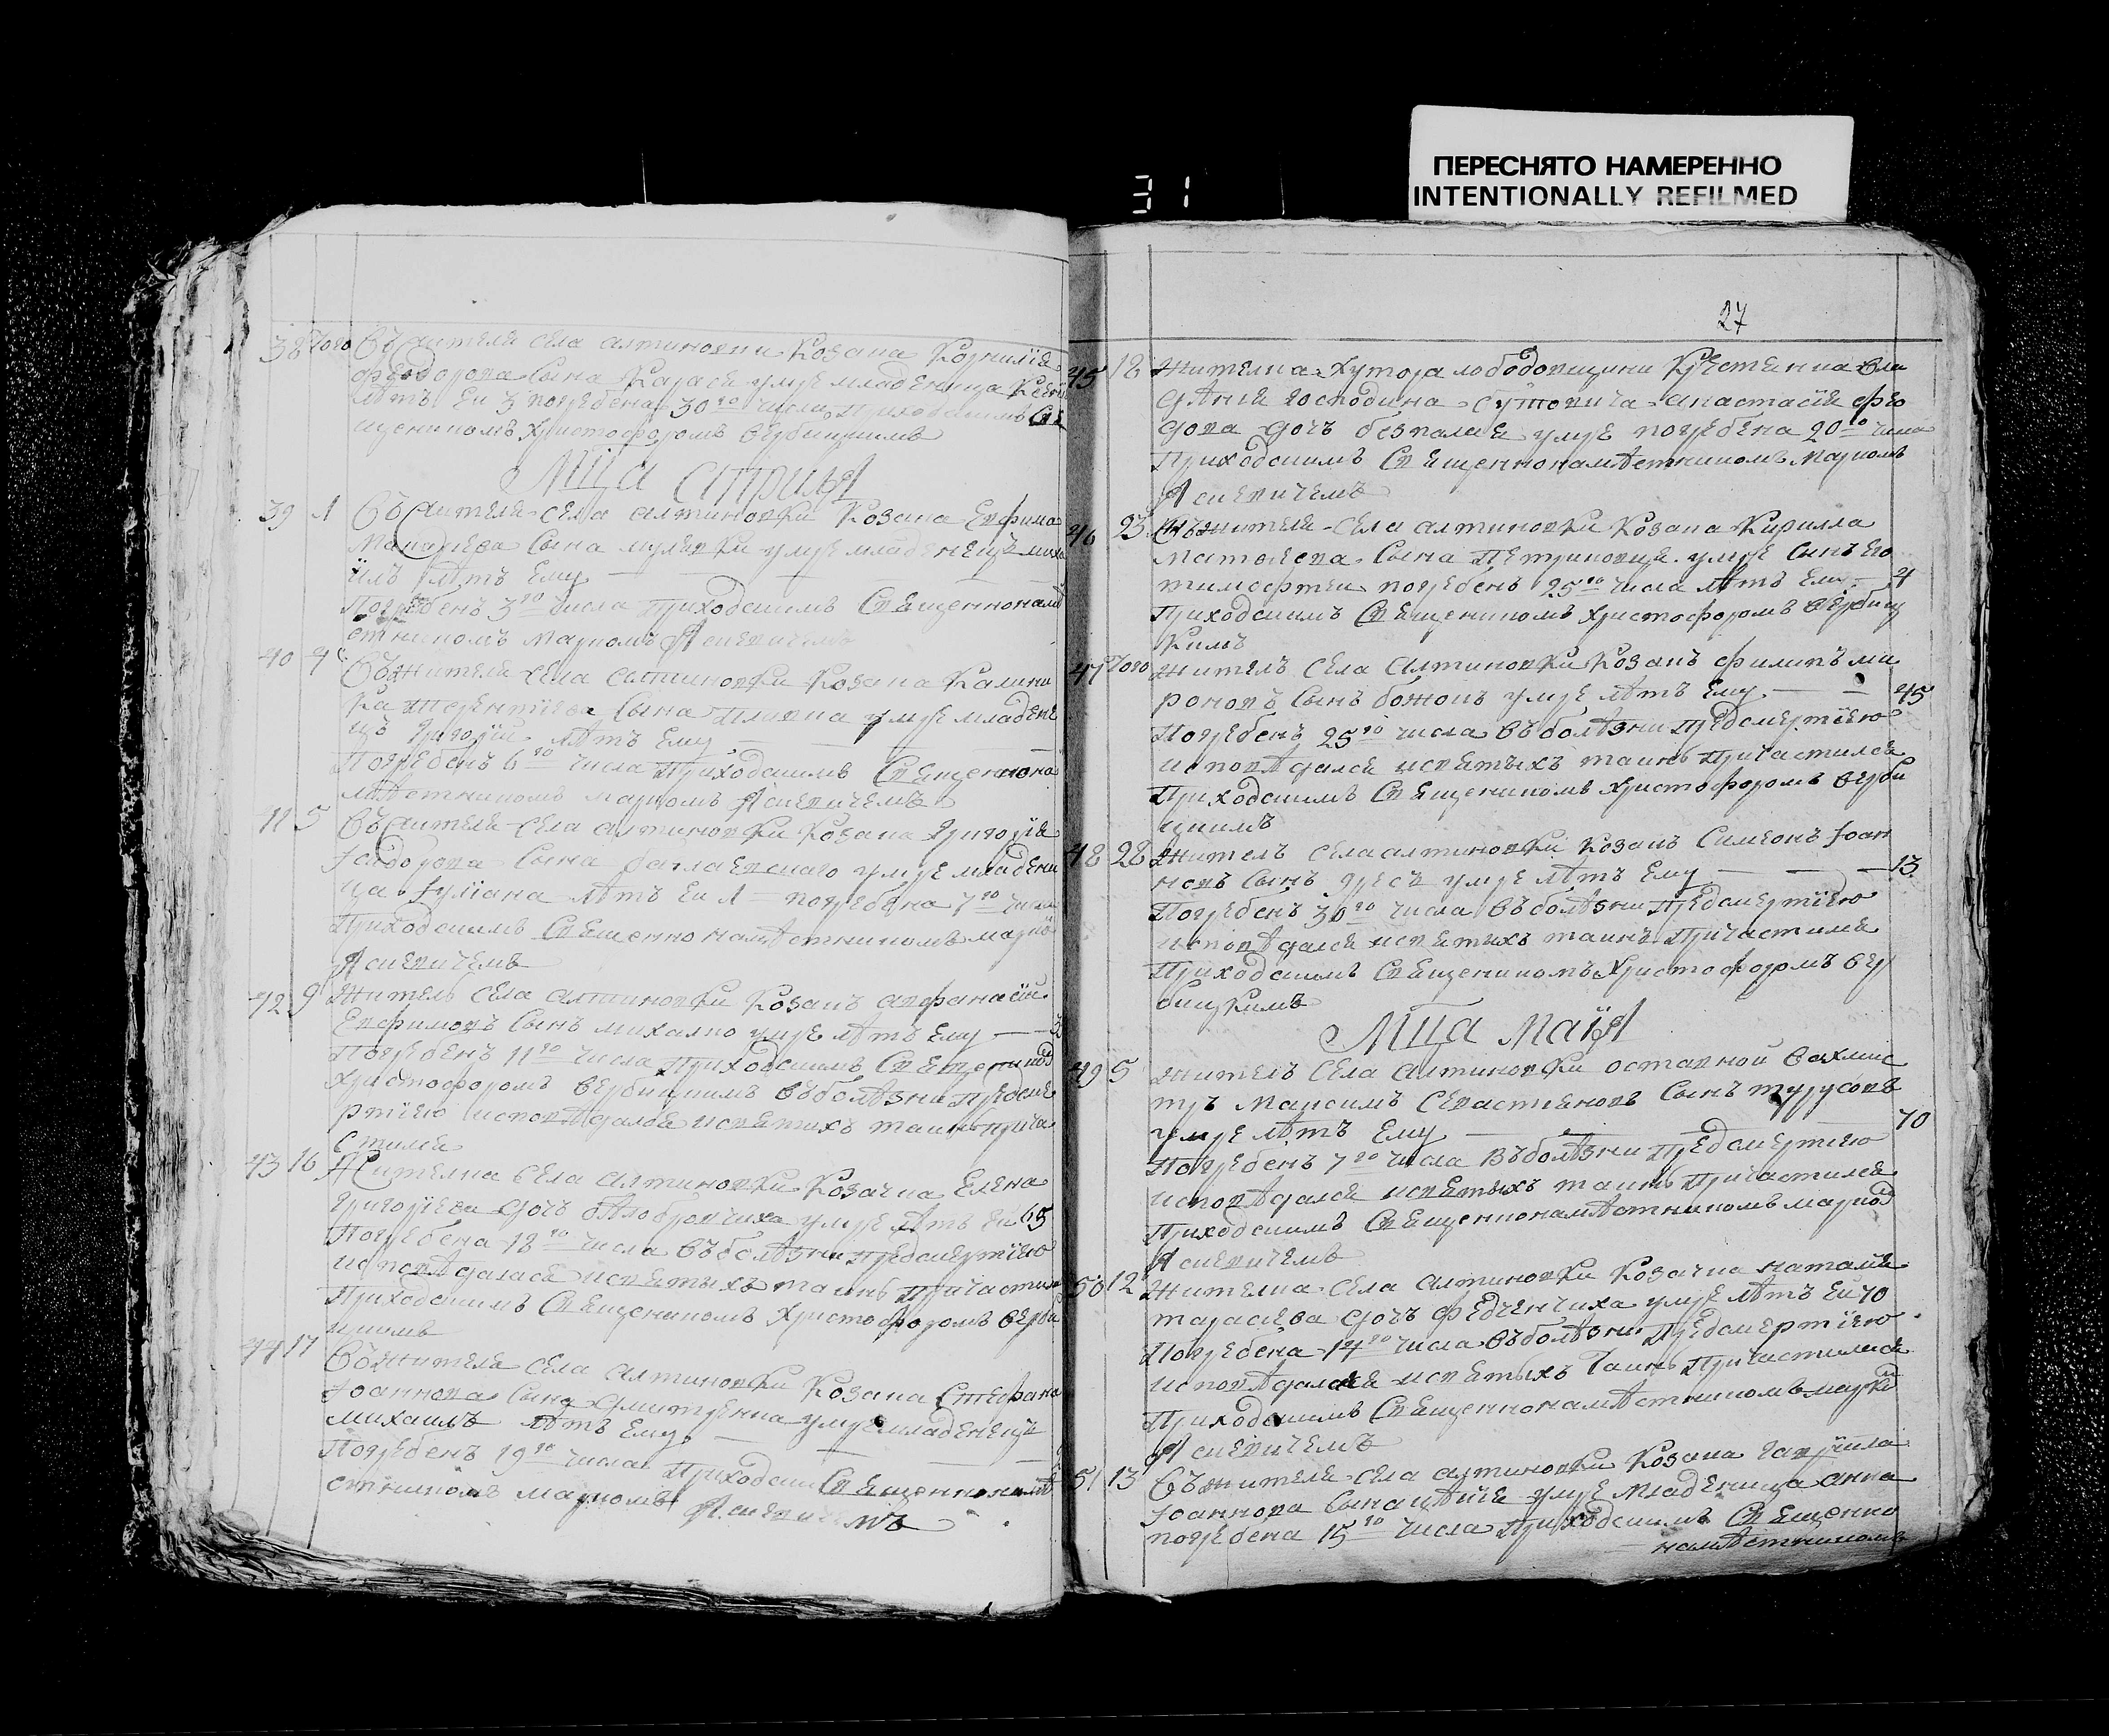 ПЕРЕСНЯТО НАМЕРЕННО
INTENTIONALLY REFILMED
31
38 Того Въ жителя села алтиновки Козака Корнилїя
феодорова Сына Карася умре младеница Ксенїя
лѣтъ Еи 3 погребена 30го числа приходскимъ Свя
щенникомъ Христофоромъ Вербицкимъ
Мца Априля
39 1 Въ жителя села алтиновки Козака Евфима
Сына мулявки умре младенецъ миха
илъ лѣтъ Ему
Погребенъ 3го числа приходскимъ Священнонамѣ
стникомъ маркомъ Ясневичемъ
40 4 Въ жителя села алтиновки Козака Калини
ка терентїева Сына умре младене
цъ Григорїй лѣтъ Ему
Погребенъ 6го числа Приходскимъ Священнона
мѣстникомъ маркомъ Ясневичемъ
41 5 Въ жителя села алтиновки Козака Григорїя
Сына умре младени
ца Іулїана лѣтъ Еи 1 погребена 7го числа
Приходскимъ Священнонамѣстникомъ марко
Ясневичемъ
42 9 Житель села алтиновки Козакъ афанасїй
Евфимовъ Сынъ михалко умре лѣтъ Ему
Погребенъ 11го числа Приходскимъ Священнико
Христофоромъ Вербицкимъ въ болѣзни предсме
ртїею исповѣдался и святихъ таинъ прича
стился
43 16 Жителка села алтиновки Козачка Елена
Григорїева дочъ бѣлобровчиха умре лѣтъ Еи 65
Погребена 18го числа Въ болѣзни предсмертїею
исповѣдалася и святыхъ таинъ причасти
Приходскимъ Священикомъ Христофоромъ Верби
цкимъ
44 17 Въ жителя села алтиновки Козака Стефана
Іоаннова Сына Дмитренка умре младенецъ
михаилъ лѣтъ Ему
Погребенъ 19го числа Приходским Священнонамѣ
стникомъ маркомъ Ясневичемъ
27
45 18 Жителка Хутора лободовщини Крестянка вла
дѣнїя господина анастасїя фео
дова дочъ безпалая умре погребена 20го числа
Приходскимъ Священнонамѣстникомъ Маркомъ
Ясневичемъ
46 23 Въ жителя села алтиновки Козака Кирилла
Матфеева Сына Петриковця умре Сынъ Его
тимофтеи погребенъ 25го числа лѣтъ Ему 4
Приходскимъ Священикомъ Христофоромъ Вербиц
Кимъ
47 Того Житель села алтиновки Козакъ филипъ ми
роновъ Сынъ божокъ умре лѣтъ Ему 45
Погребенъ 25го числа Въ болѣзни предсмертїею
исповѣдался и святыхъ таинъ причастился
Приходскимъ Священикомъ Христофоромъ Верби
цкимъ
48 28 Житель села алтиновки Козакъ Симеонъ Іоан
новъ Сынъ умре лѣтъ Ему 13
Погребенъ 30го числа Въ болѣзни предсмертїею
исповѣдался и святихъ таинъ причастился
Приходскимъ Священикомъ Христофоромъ Вер
бицкимъ
Мца Маїя
49 5 Житель села алтиновки оставной вахмис
тръ Максимъ Севастяновъ Сынъ турусовъ
умре лѣтъ Ему 70
Погребенъ 7го числа Въ болѣзни предсмертїею
исповѣдался и святыхъ таинъ причастился
Приходскимъ Священнонамѣстникомъ марком
Ясневичемъ
50 12 Жителка села алтиновки Козачка наталїя
тарасїева дочъ федченчиха умре лѣтъ Еи 70
Погребена 14го числа Въ болѣзни предсмертїею
исповѣдалася и святыхъ Таинъ причастилася
Приходскимъ Священнонамѣстникомъ марком
Ясневичемъ
51 13 Въ жителя села алтиновки Козака гаврїила
Іоаннова Сына умре младеница анна
погребена 15го числа Приходскимъ Священно
намѣстникомъ